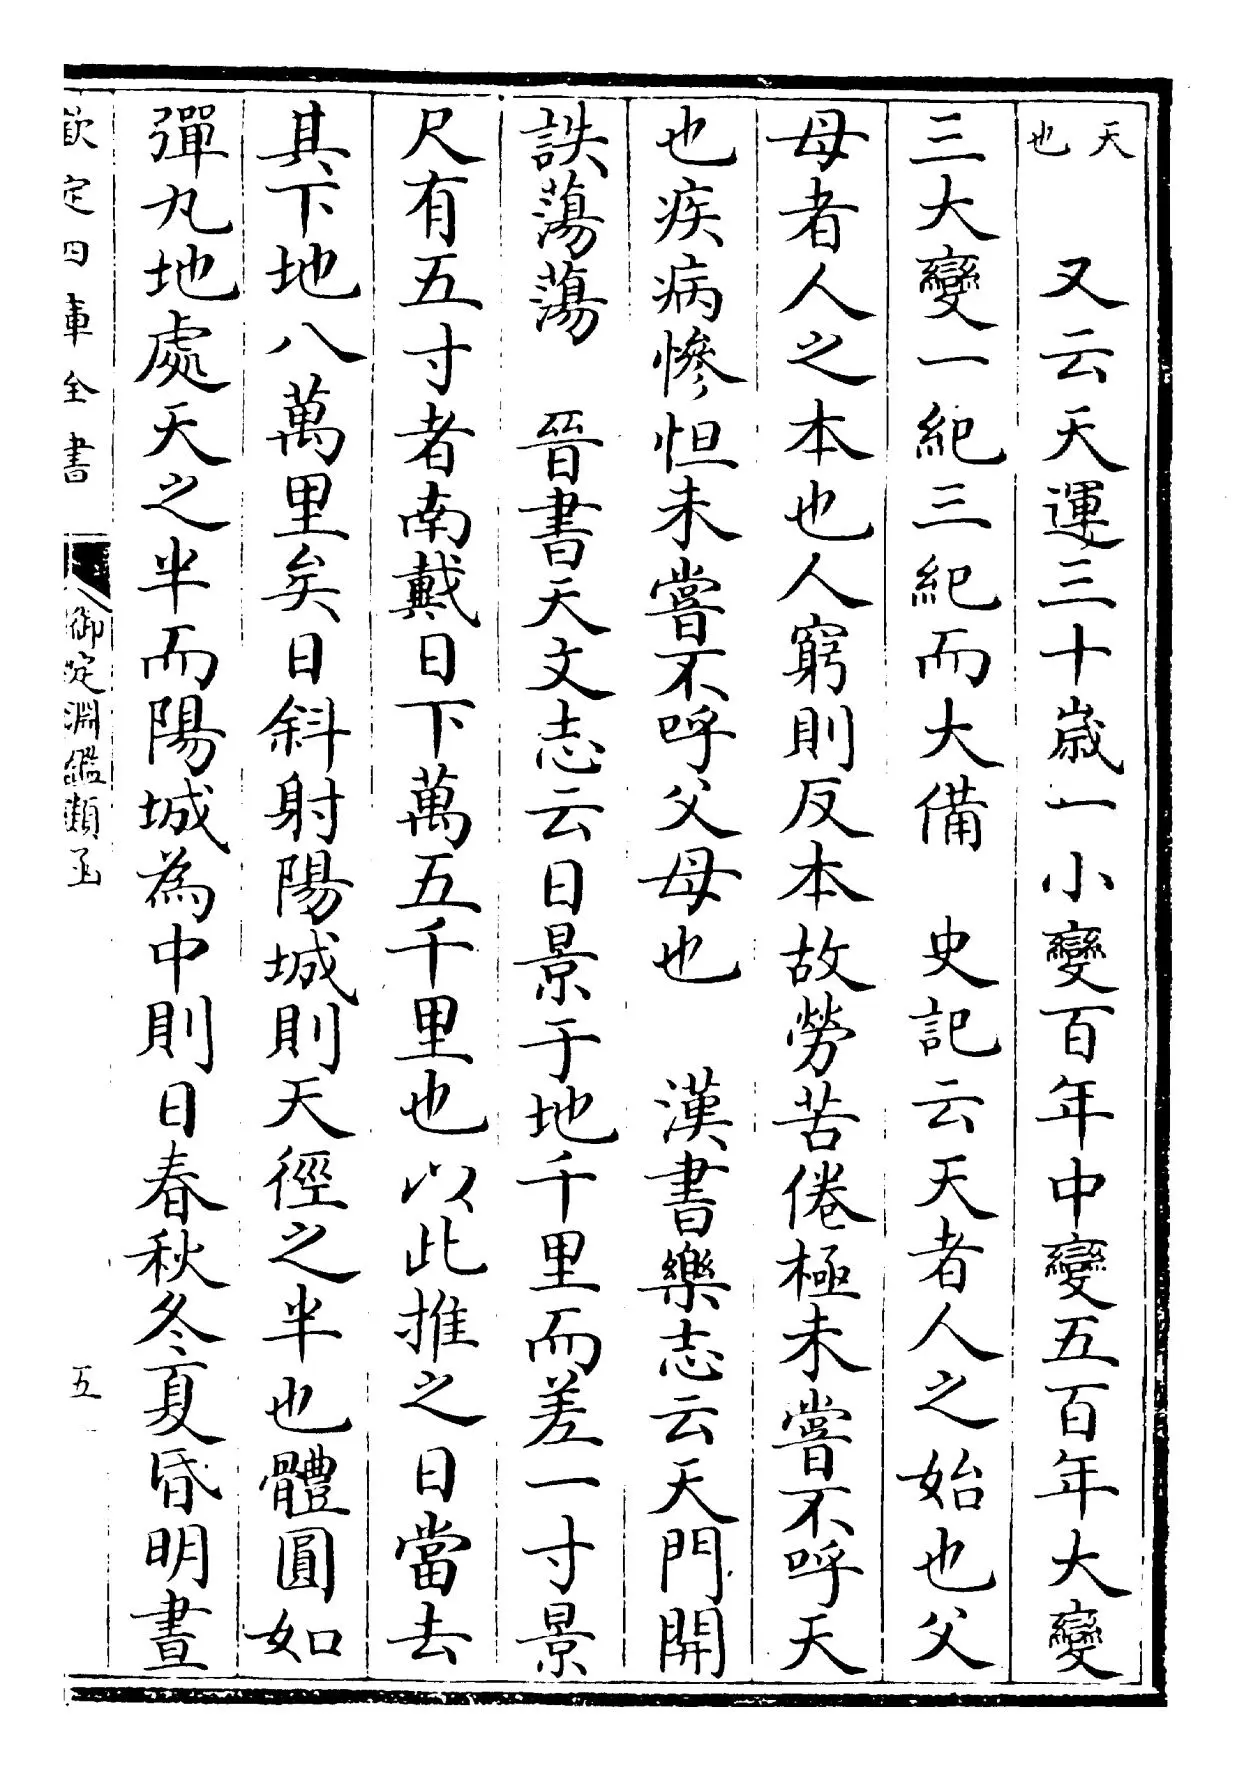 天也　又云天運三十歲一小變百年中變五百年大變
三大變一紀三紀而大備　史記云天者人之始也父
母者人之本也人窮則反本故勞苦倦極未嘗不呼天
也疾病慘怛未嘗不呼父母也　漢書樂志云天門開
詄蕩蕩　晉書天文志云日景于地千里而差一寸景
尺有五寸者南戴日下萬五千里也以此推之日當去
其下地八萬里矣日斜射陽城則天徑之半也體圓如
彈丸地處天之半而陽城為中則日春秋冬夏昏明晝
欽定四庫全書　御定淵鑑類函　五